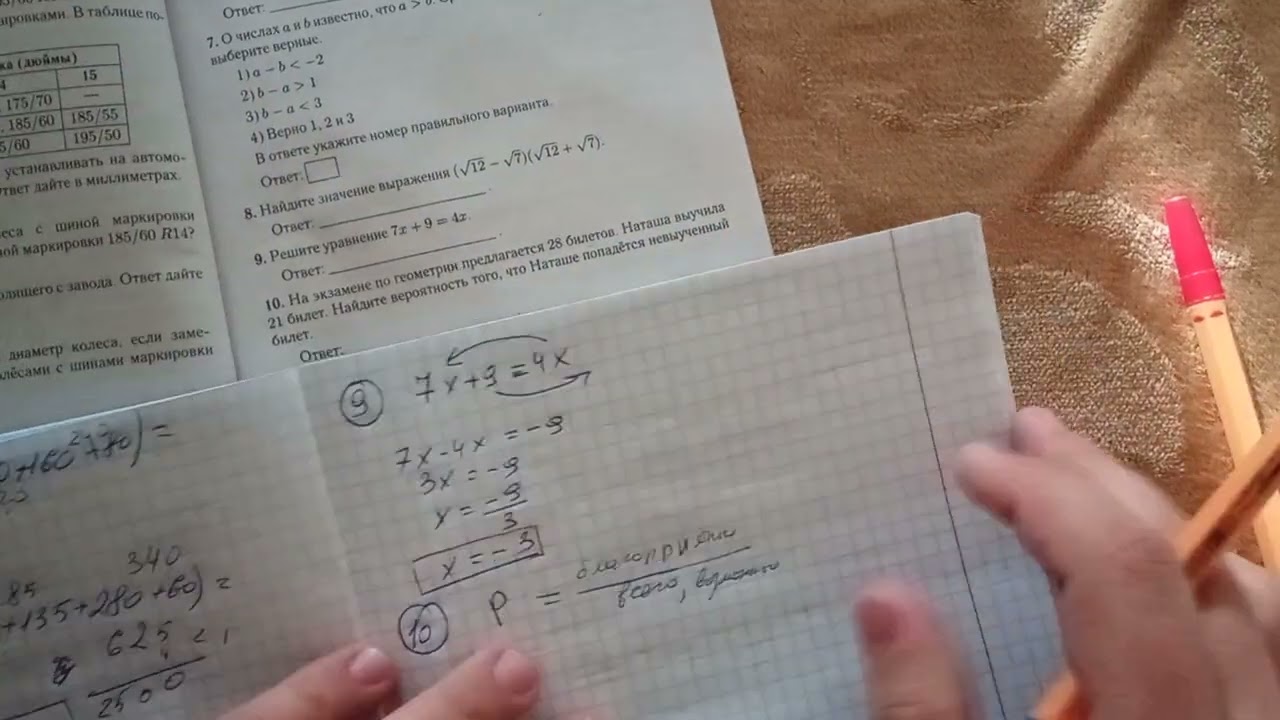 ка (дюймы)
15
175/70
—
185/60
185/55
195/50
устанавливать на автомо-
ответ дайте в миллиметрах.
с шиной маркировки
маркировки 185/60 R14?
с завода. Ответ дайте
диаметр колеса, если заме-
с шинами маркировки
Ответ:
7. О числах a и b известно, что a >
выберите верные.
1) a − b < −2
2) b − a > 1
3) b − a < 3
4) Верно 1, 2 и 3
В ответе укажите номер правильного варианта.
Ответ:
8. Найдите значение выражения (√12 − √7)(√12 + √7).
Ответ:
9. Решите уравнение 7x + 9 = 4x.
Ответ:
10. На экзамене по геометрии предлагается 28 билетов. Наташа выучила
21 билет. Найдите вероятность того, что Наташе попадётся невыученный
билет.
Ответ:
340
85
+135+280+60) =
625
2500
9 7x+9=4x
7x-4x = -9
3x = -9
x = -9/3
x = -3
10 P =
всего,